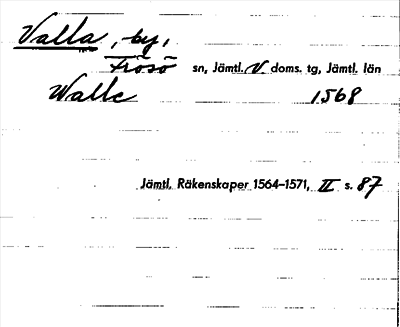 Valla, by,
Frösö sn, Jämtl. V. doms. tg, Jämtl. län
Walle 1568
Jämtl. Räkenskaper 1564–1571, II s. 87